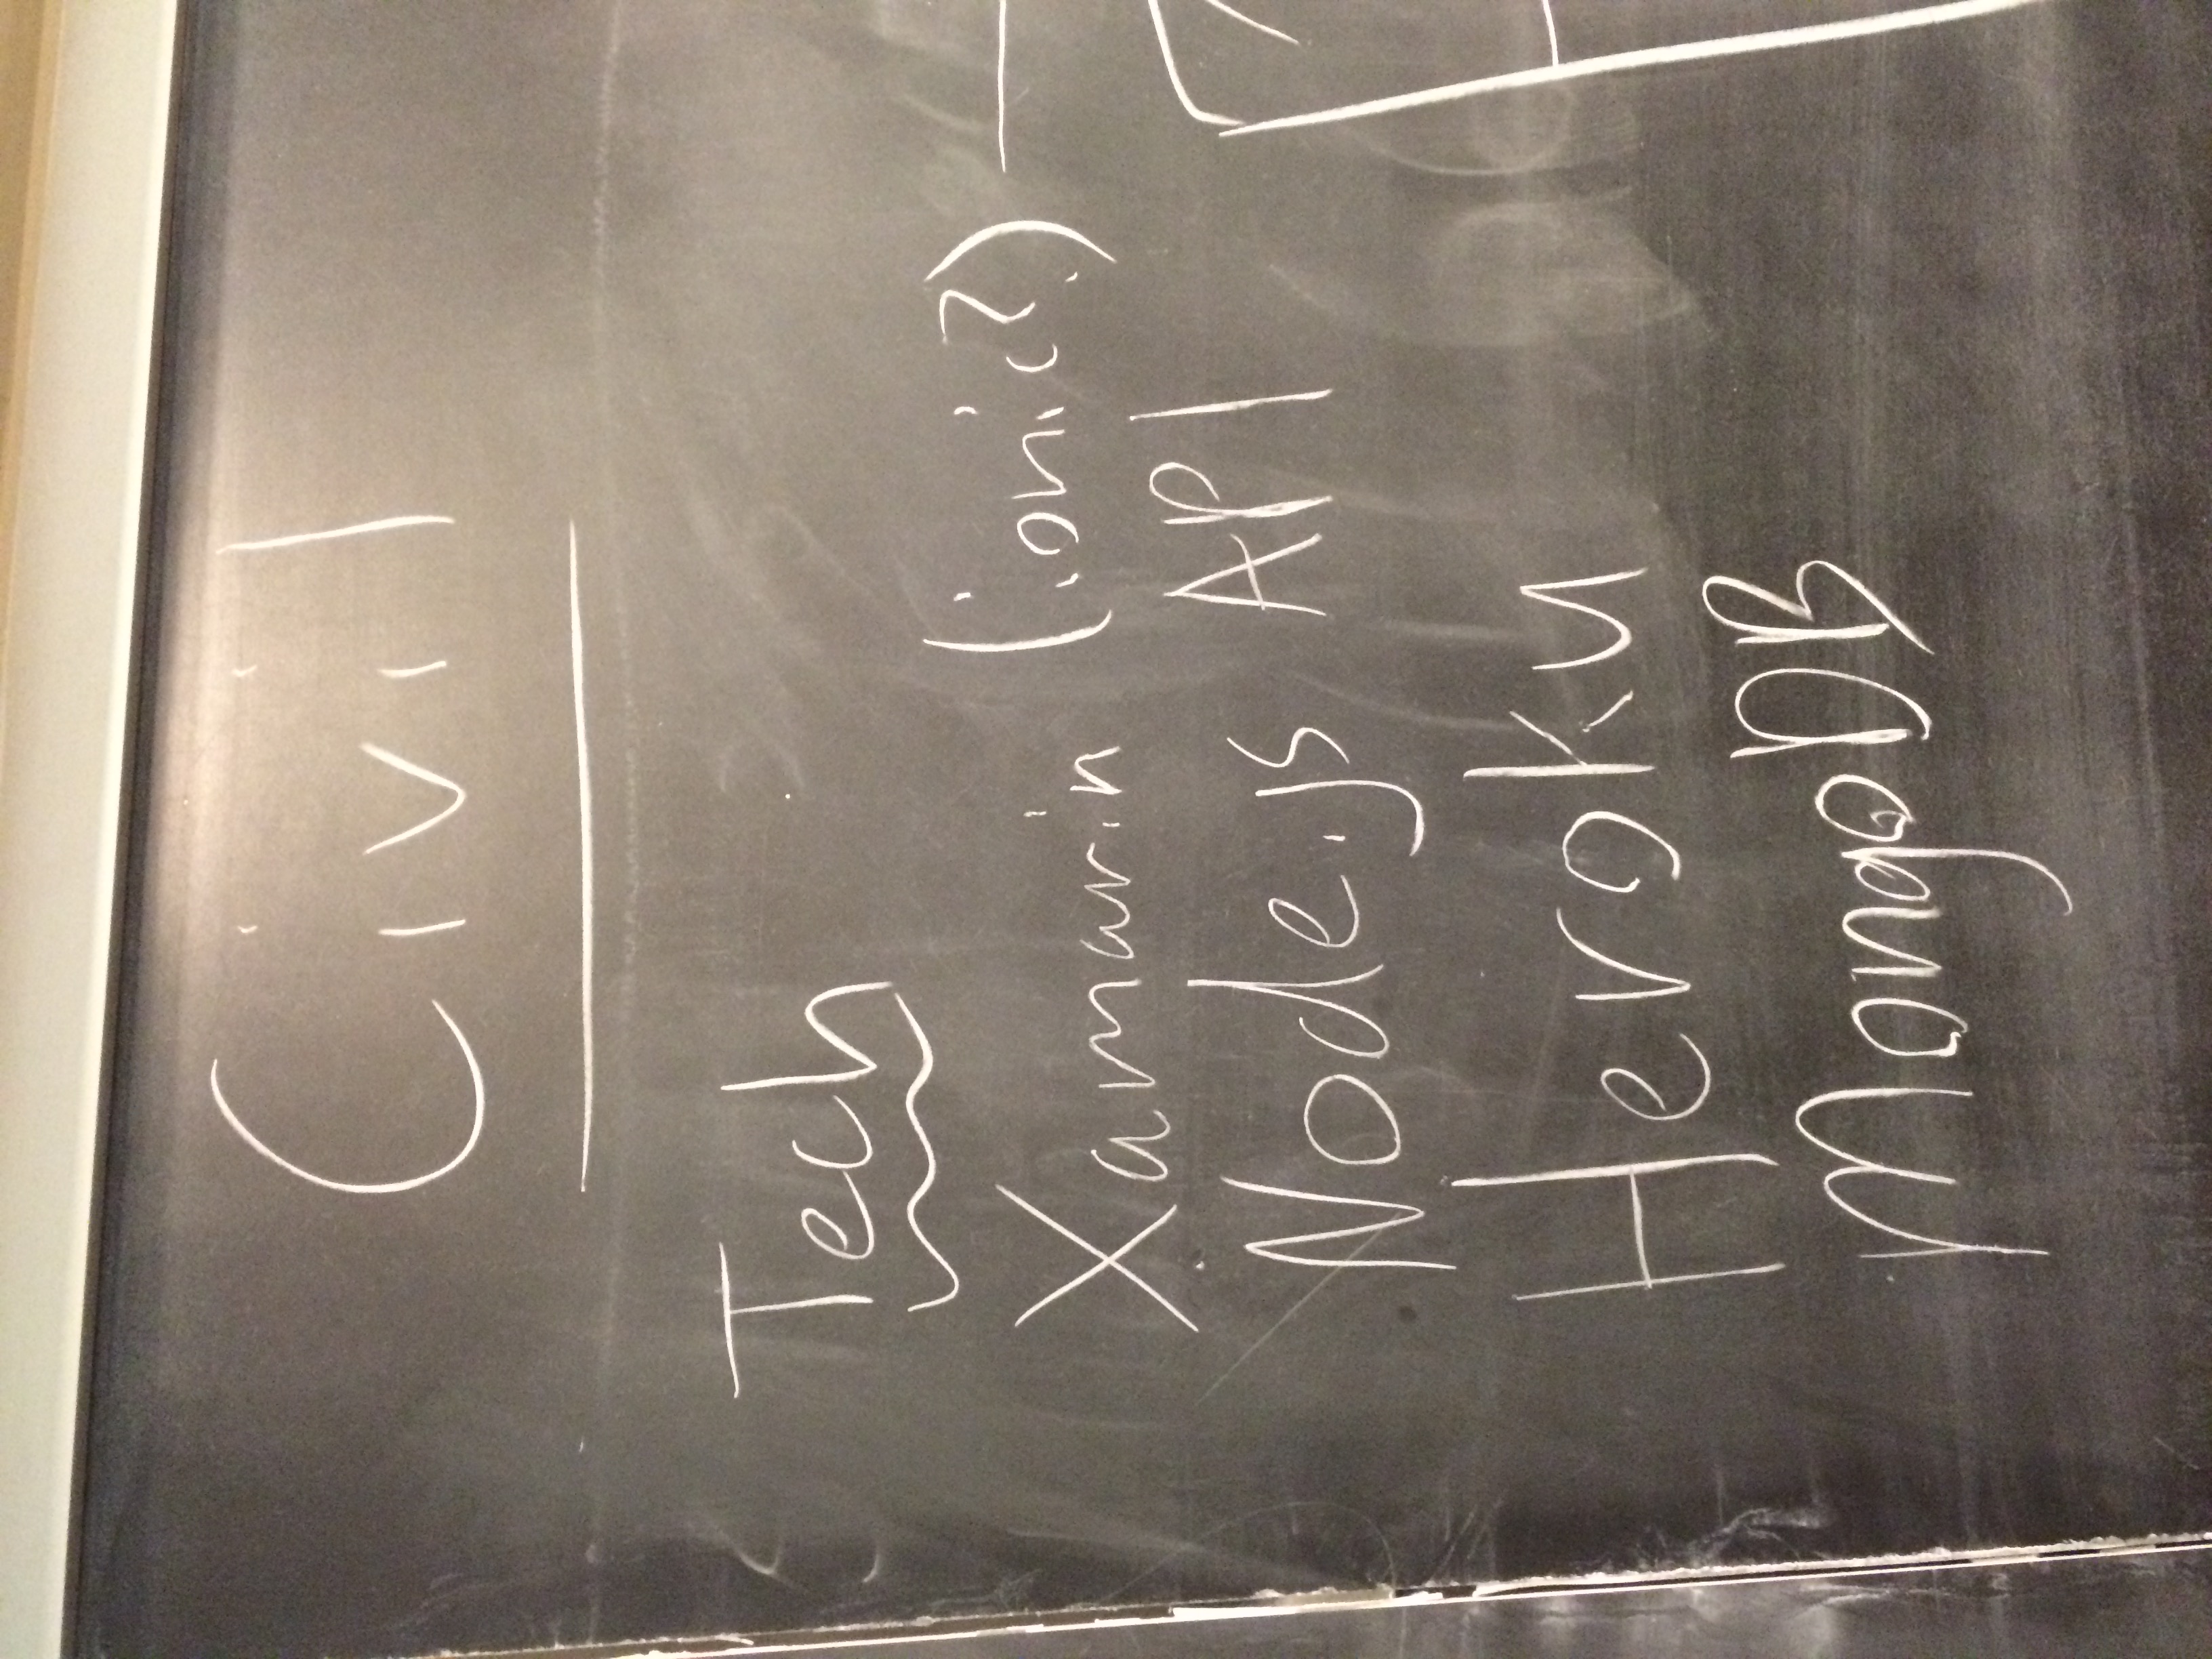 Civil
Tech
Xamarin (ionic?)
Node.js API
Heroku
MongoDB